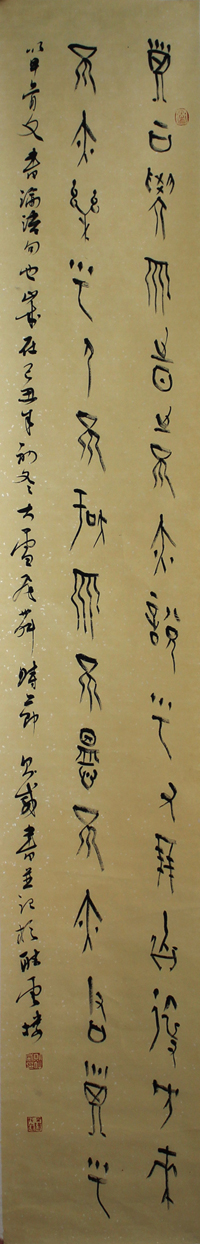 子曰學而時習之不亦說乎有朋自遠方來
不亦樂乎人不知而不慍不亦君子乎
以甲骨文書論語句也歲在己丑年初冬大雪飛舞時節 書並記於